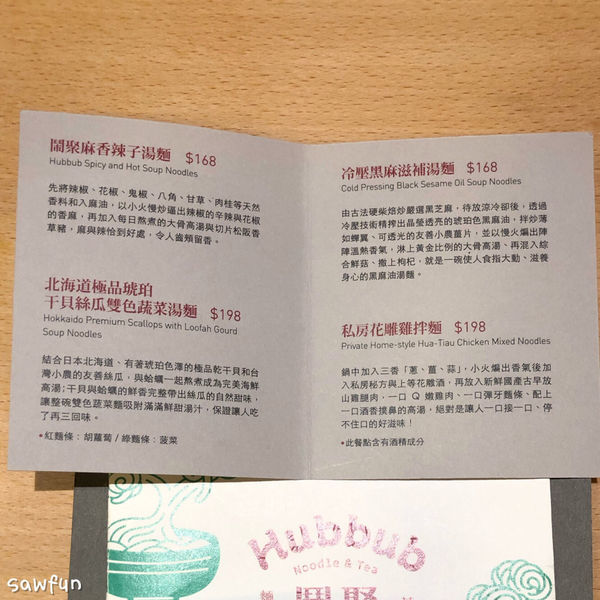 鬧聚麻香辣子湯麵 $168
Hubbub Spicy and Hot Soup Noodles
先將辣椒、花椒、鬼椒、八角、甘草、肉桂等天然
香料和入麻油，以小火慢炒逼出辣椒的辛辣與花椒
的香麻，再加入每日熬煮的大骨高湯與切片松阪香
草豬，麻與辣恰到好處，令人齒頰留香。
北海道極品琥珀
干貝絲瓜雙色蔬菜湯麵 $198
Hokkaido Premium Scallops with Loofah Gourd
Soup Noodles
結合日本北海道、有著琥珀色澤的極品乾干貝和台
灣小農的友善絲瓜，與蛤蠣一起熬煮成為完美海鮮
高湯；干貝與蛤蠣的鮮香完整帶出絲瓜的自然甜味，
讓整碗雙色蔬菜麵吸附滿滿鮮甜湯汁，保證讓人吃
了再三回味。
•紅麵條：胡蘿蔔 / 綠麵條：菠菜
冷壓黑麻滋補湯麵 $168
Cold Pressing Black Sesame Oil Soup Noodles
由古法硬柴焙炒嚴選黑芝麻，待放涼冷卻後，透過
冷壓技術精搾出晶瑩透亮的琥珀色黑麻油，拌炒薄
如蟬翼、可透光的友善小農薑片，並以慢火煸出陣
陣溫熱香氣，淋上黃金比例的大骨高湯、再混入綜
合鮮菇、撒上枸杞，就是一碗使人食指大動、滋養
身心的黑麻油湯麵。
私房花雕雞拌麵 $198
Private Home-style Hua-Tiau Chicken Mixed Noodles
鍋中加入三香「蔥、薑、蒜」，小火煸出香氣後加
入私房秘方與上等花雕酒，再放入新鮮國產古早放
山雞腿肉，一口 Q 嫩雞肉、一口彈牙麵條、配上
一口酒香撲鼻的高湯，絕對是讓人一口接一口、停
不住口的好滋味！
•此餐點含有酒精成分
Hubbub
Noodle & Tea
sawfun